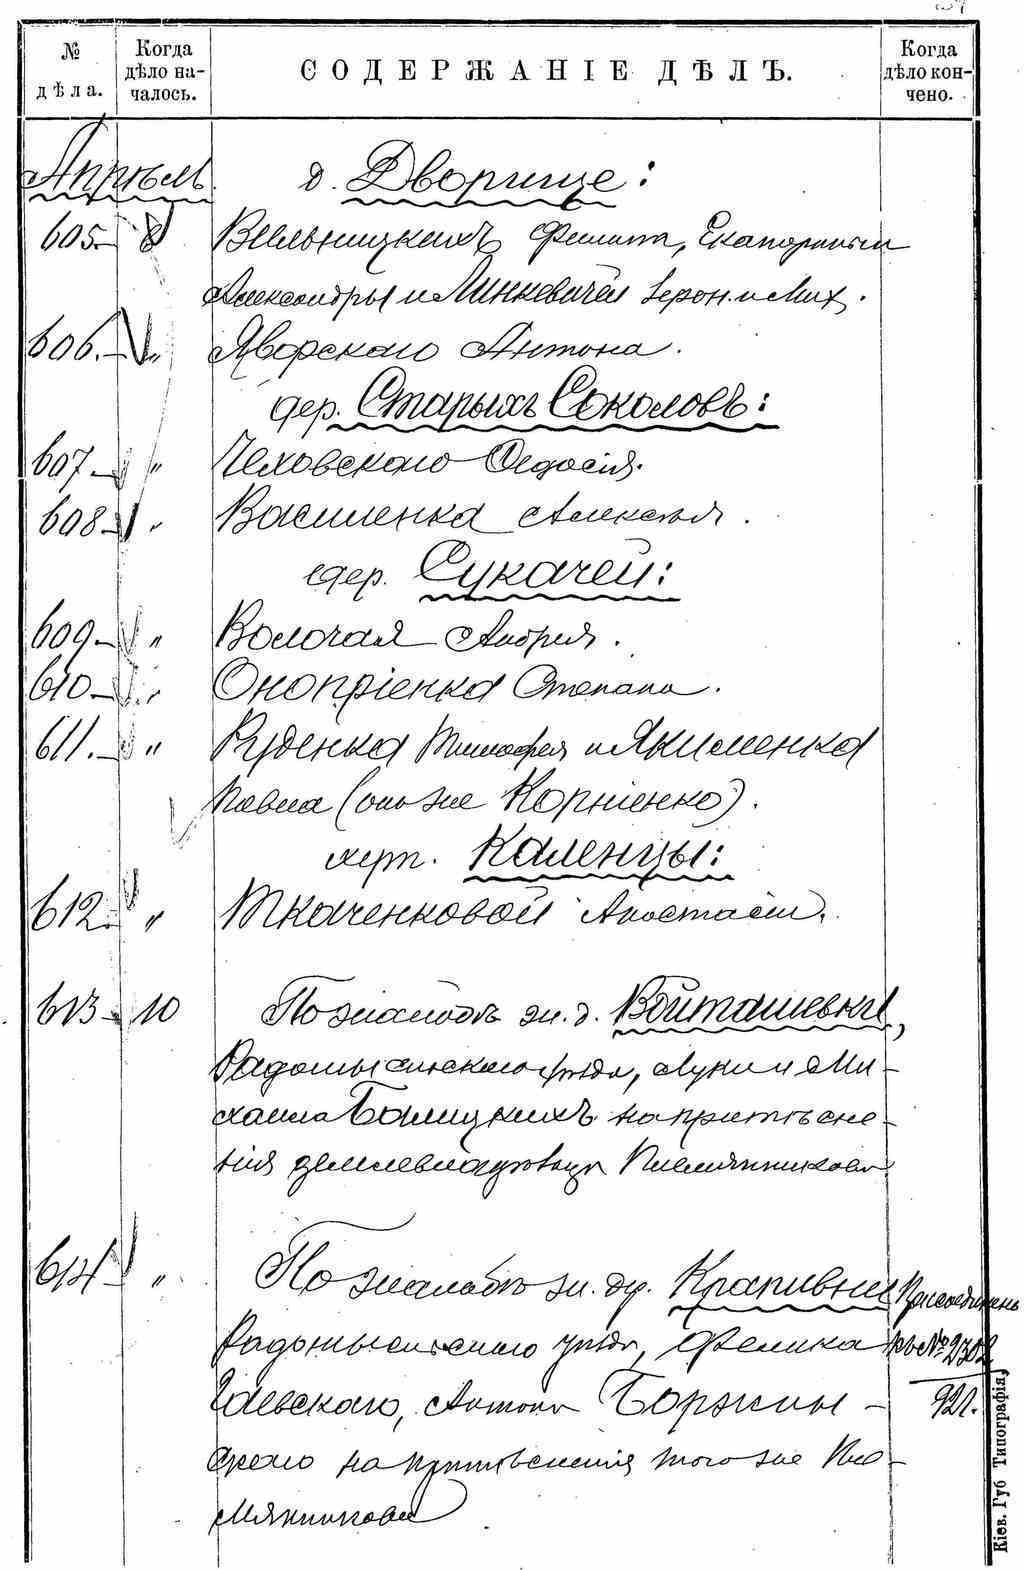 № дѣла.
Когда дѣло началось.
СОДЕРЖАНІЕ ДѢЛЪ.
Когда дѣло кончено.
Апрѣль д. Дворище:
605 8 Вильницкихъ Филипа, Екатерины
Александры и Минкевичей Іерон. и Мих.
606. " Яворскаго Антона.
дер. Старыхъ Соколовъ:
607 " Чеховскаго Ѳедосія.
608 " Василенка Алексѣя.
дер. Сукачей:
609 " Волочая Андрея.
610 " Оноприенка Степана.
611. " Руденка Тимофея и Якименка
Павла (онъ же Корніенко).
хут. Каленцы:
612 " Ткаченковой Анастасіи.
613 10 По жалобѣ жи. д. Войташевки,
Радомысльскаго уѣзда, Луки и Ми-
хаила Балицкихъ на притѣсне-
нія землевладѣльца Племянникова
614 " По жалобѣ жи. др. Крапивни
Присоединенъ
Радомысльскаго уѣзда, Феликса
къ № 2302
Гаевскаго, Антона Боржим-
92 г.
скаго на притѣсненія того же Пле-
мянникова
Кіев. Губ Типографія,